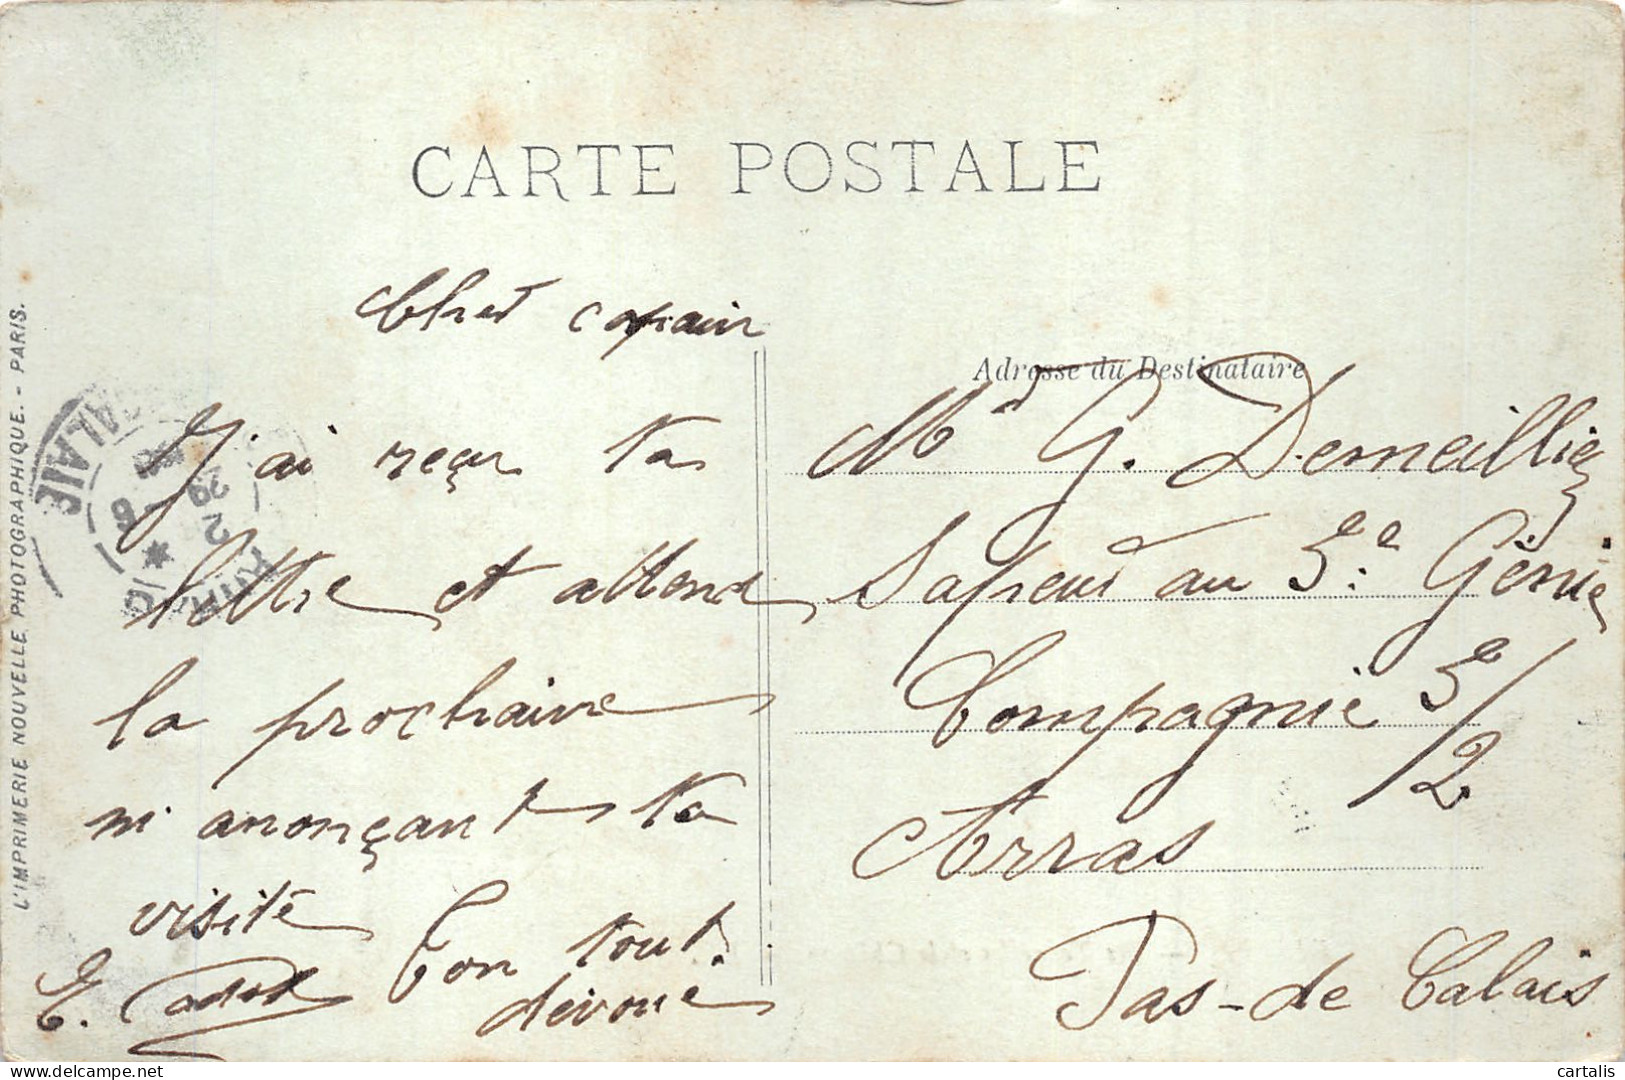 CARTE POSTALE
Cher copain
J'ai reçu ta
lettre et attend
la prochaine
m'anonçant ta
visite
Ton tout
dévoué
E.
Adresse du Destinataire
Mr G. Demeillie
Sapeur au 3e Génie
Compagnie 3/2
Arras
Pas-de Calais
L'IMPRIMERIE NOUVELLE PHOTOGRAPHIQUE. - PARIS.
cartalis
Delcampe.net